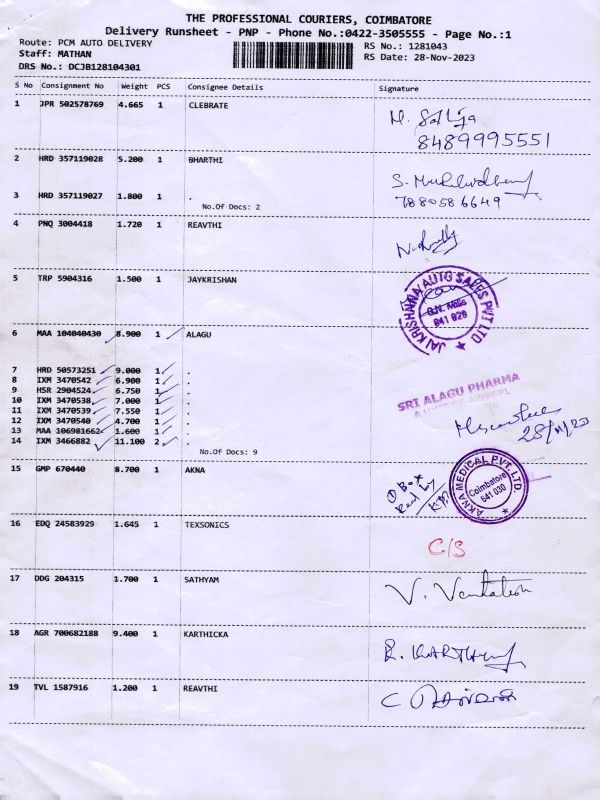 THE PROFESSIONAL COURIERS, COIMBATORE
Delivery Runsheet - PNP - Phone No.:0422-3505555 - Page No.:1
Route: PCM AUTO DELIVERY RS No.: 1281043
Staff: MATHAN RS Date: 28-Nov-2023
DRS No.: DCJB128104301
S No Consignment No Weight PCS Consignee Details Signature
1 JPR 502578769 4.665 1 CLEBRATE
8489995551
2 HRD 357119028 5.200 1 BHARTHI
3 HRD 357119027 1.800 1 .
No.Of Docs: 2
7880586649
4 PNQ 3004418 1.720 1 REAVTHI
5 TRP 5904316 1.500 1 JAYKRISHAN
JAI KRISHNAA AUTO SALES PVT LTD
G.N. Mills
641 029
6 MAA 104040430 8.900 1 ALAGU
7 HRD 50573251 9.000 1 .
8 IXM 3470542 6.900 1 .
9 HSR 2904524 6.750 1 .
10 IXM 3470538 7.000 1 .
11 IXM 3470539 7.550 1 .
12 IXM 3470540 4.700 1 .
13 MAA 106981662 1.600 1 .
14 IXM 3466882 11.100 2 .
No.Of Docs: 9
SRI ALAGU PHARMA
28/11/23
15 GMP 670440 8.700 1 AKNA
① Box
AKNA MEDICAL PVT. LTD.
Coimbatore
641 030
16 EDQ 24583929 1.645 1 TEXSONICS
C/S
17 DDG 204315 1.700 1 SATHYAM
18 AGR 700682188 9.400 1 KARTHICKA
19 TVL 1587916 1.200 1 REAVTHI